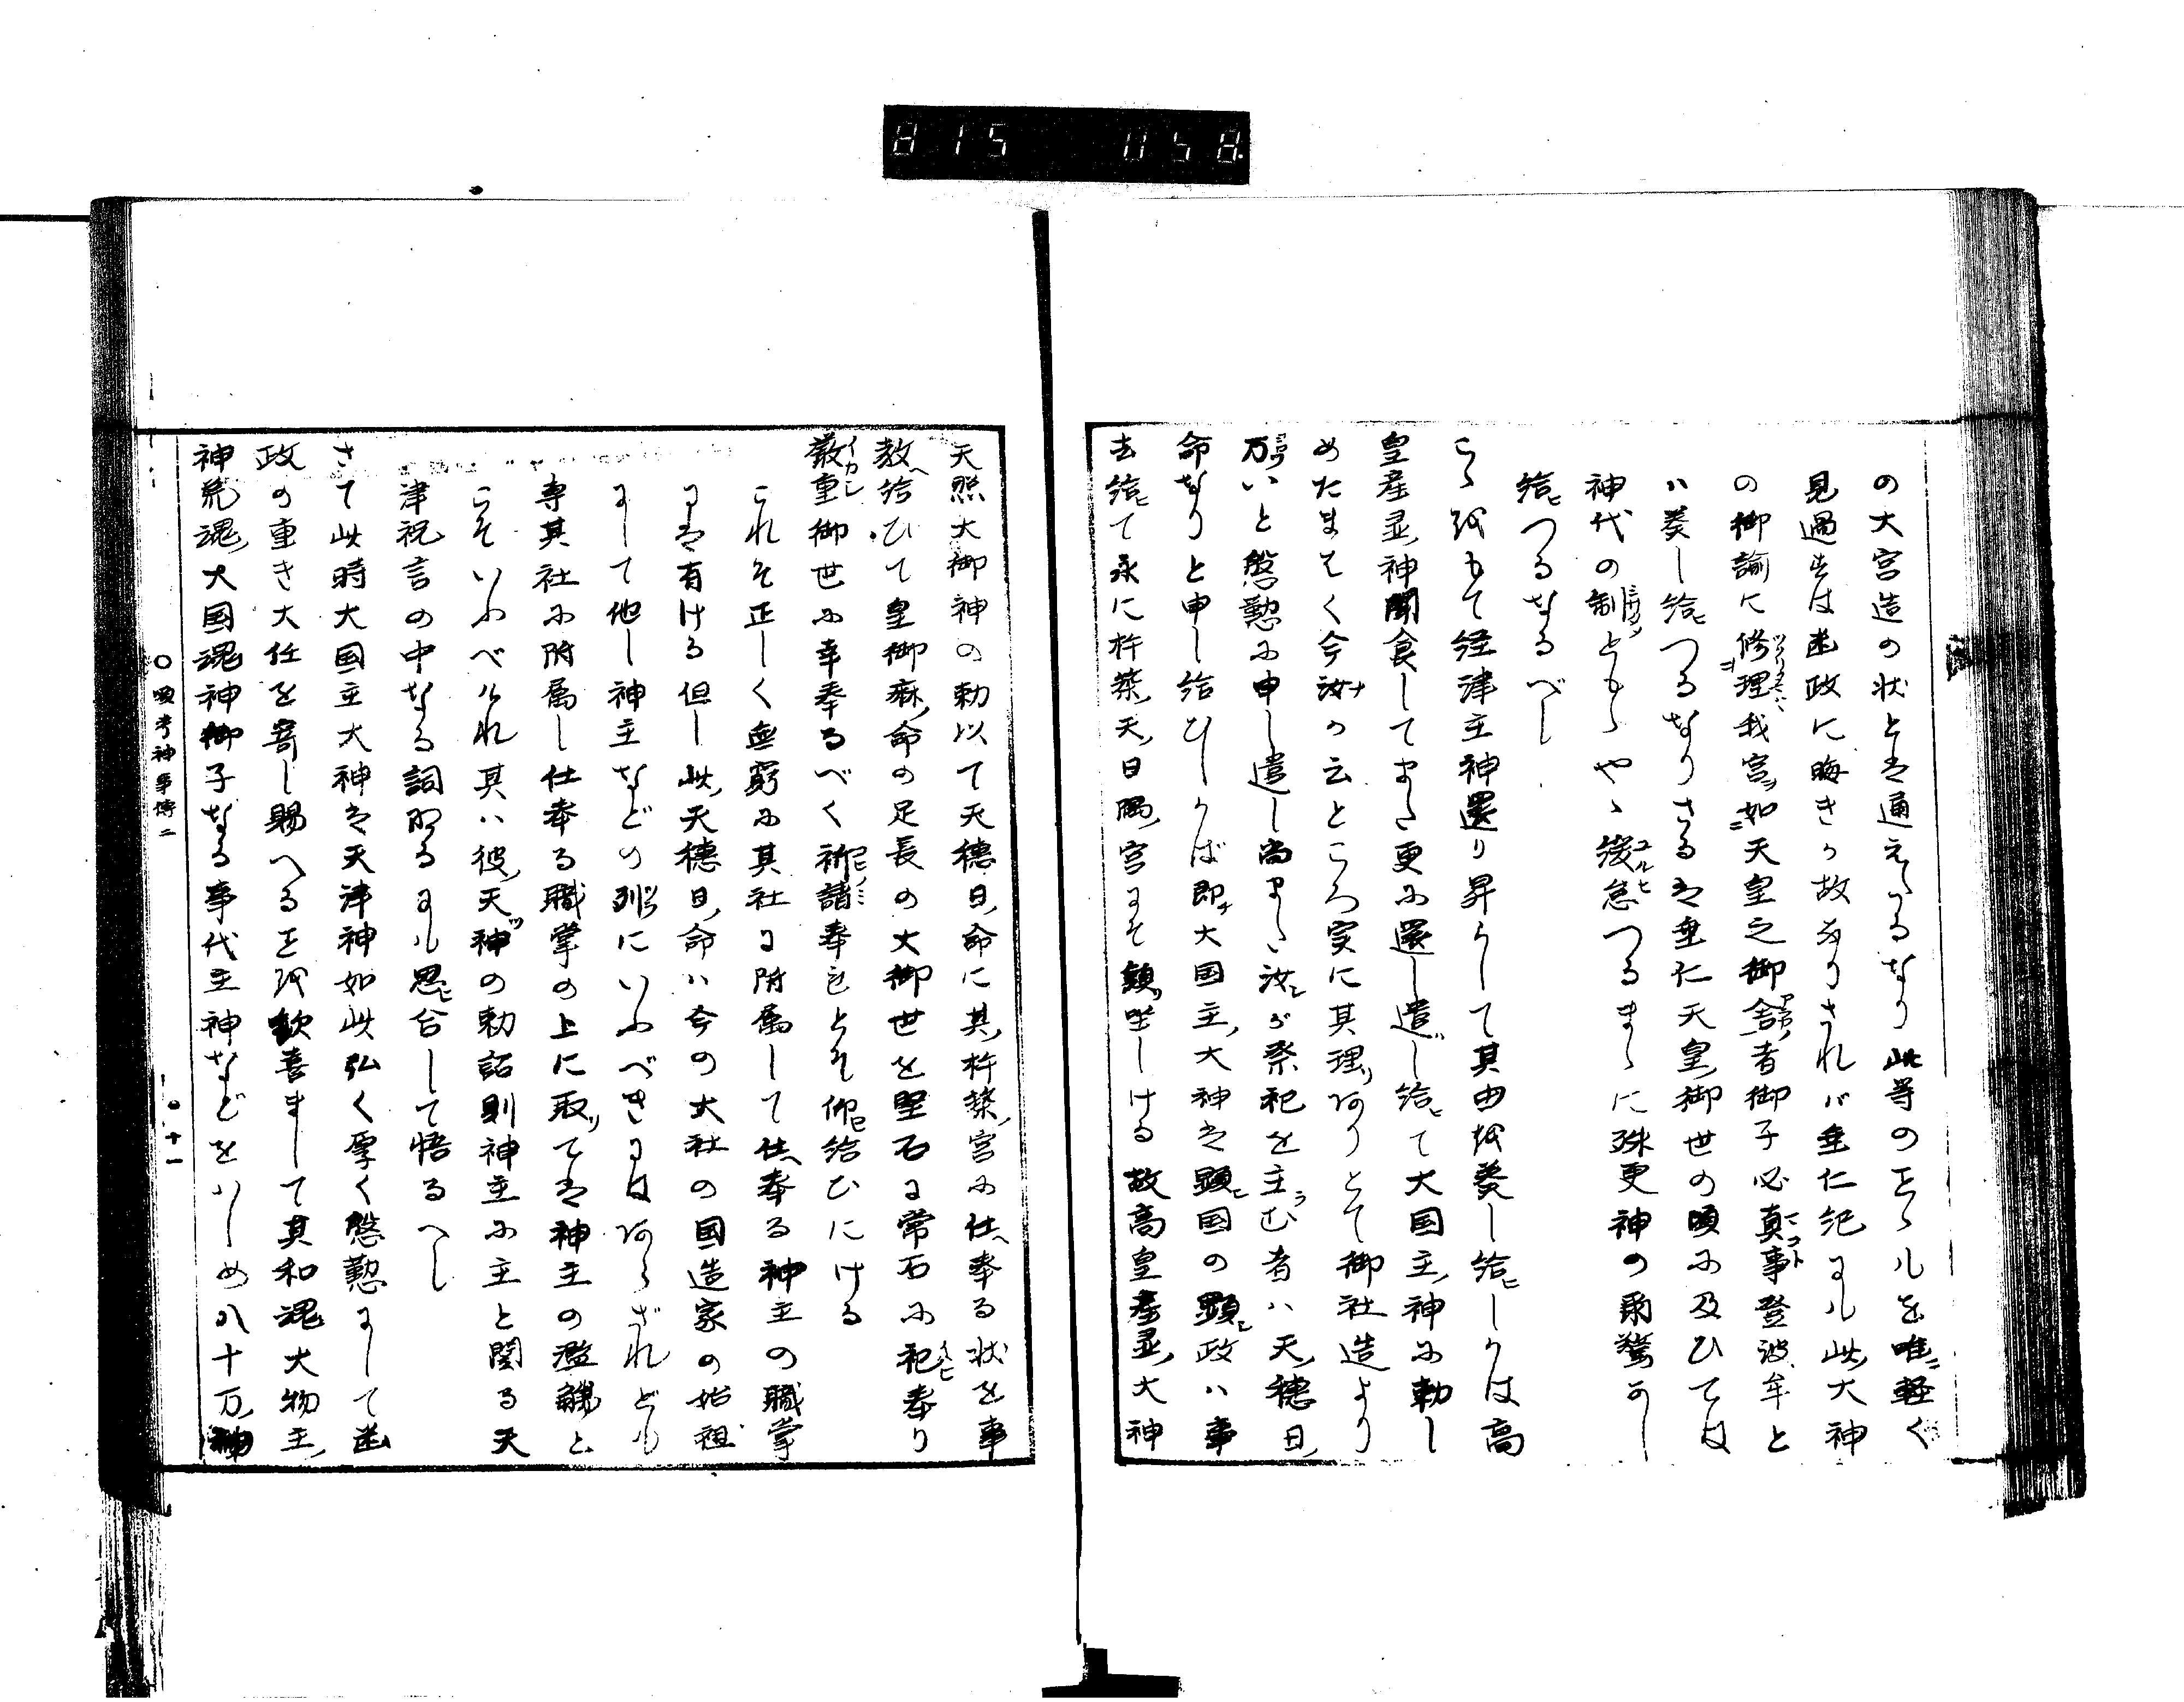 815 058
の大宮造の状とは通えざるなり此等のことゝもを唯ニ軽く
見過さは幽政に晦きか故なりされバ垂仁紀にも此大神
の御諭に修理我宮如天皇之御舎者御子必真事登波牟と
ハ奏し給ヒつるなりさるは垂仁天皇御世の頃に及ひては
神代の制ともゝやゝ緩怠つるまゝに殊更神の
給ヒつるなるべし
こゝをもて経津主神還り昇らして其由を奏し給ヒしかは高
皇産霊神聞食してまた更に還し遣し給ヒて大国主神に勅し
めたまはく今汝の云ところ実に其理ありとて御社造より
万いと慇懃に申し遣し尚また汝が祭祀を主らむ者ハ天穂日
命なりと申し給ひしかば即チ大国主大神は顕国の顕政ハ事
去給ヒて永に杵築天日隅宮にそ鎮坐しける故高皇産霊大神
天照大御神の勅以て天穂日命に其杵築宮に仕奉る状を事
教へ給ひて皇御麻命の足長の大御世を堅石に常石に祀奉り
厳重御世に幸奉るべく祈請奉れとそ仰給ひにける
これそ正しく無窮に其社に附属して仕奉る神主の職掌
には有ける但し此天穂日命ハ今の大社の国造家の始祖
にして他し神主などの列にいふべきにはあらざれども
専其社に附属し仕奉る職掌の上に取ては神主の濫觴と
こそいふべけれ其ハ彼天ツ神の勅詔則神主に主と関る天
津祝言の中なる詞なるにも思ヒ合して悟るへし
さて此時大国主大神は天津神如此弘く厚く慇懃にして幽
政の重き大任を寄し賜へることを歓喜まして其和魂大物主
神荒魂大国魂神御子なる事代主神などをはしめ八十万神
○顕考神事傳二
十一